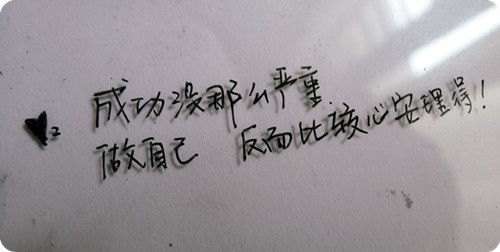 成功没那么严重
做自己 反而比较心安理得!